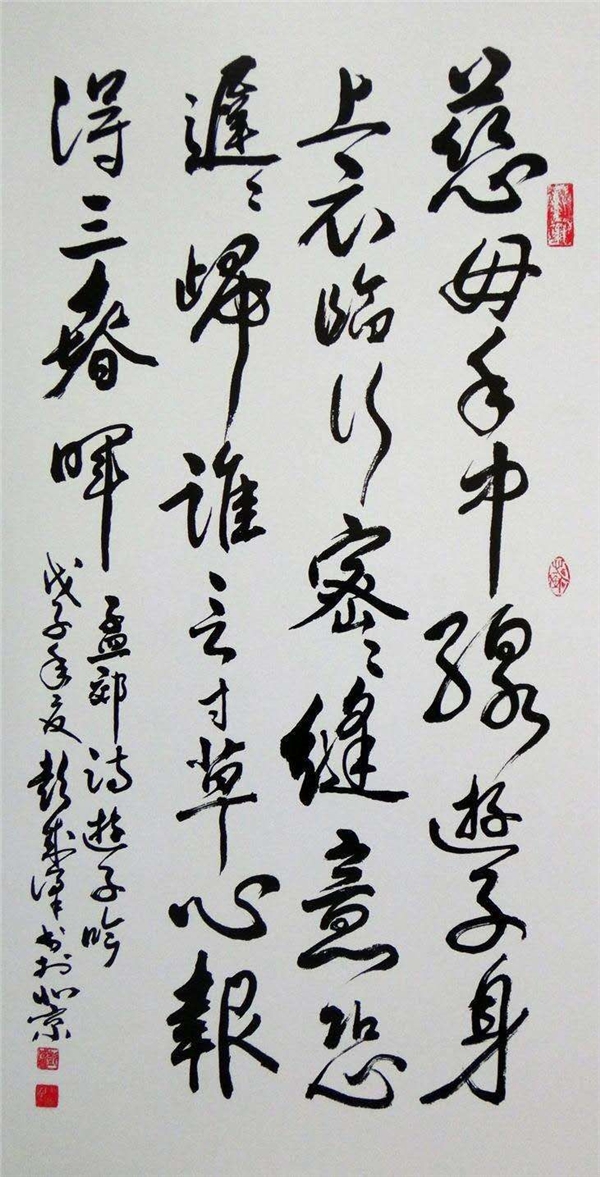 慈母手中線遊子身
上衣臨行密々縫意恐
遲々歸誰言寸草心報
得三春暉
孟郊詩遊子吟
戊子年夏彭成書於北京